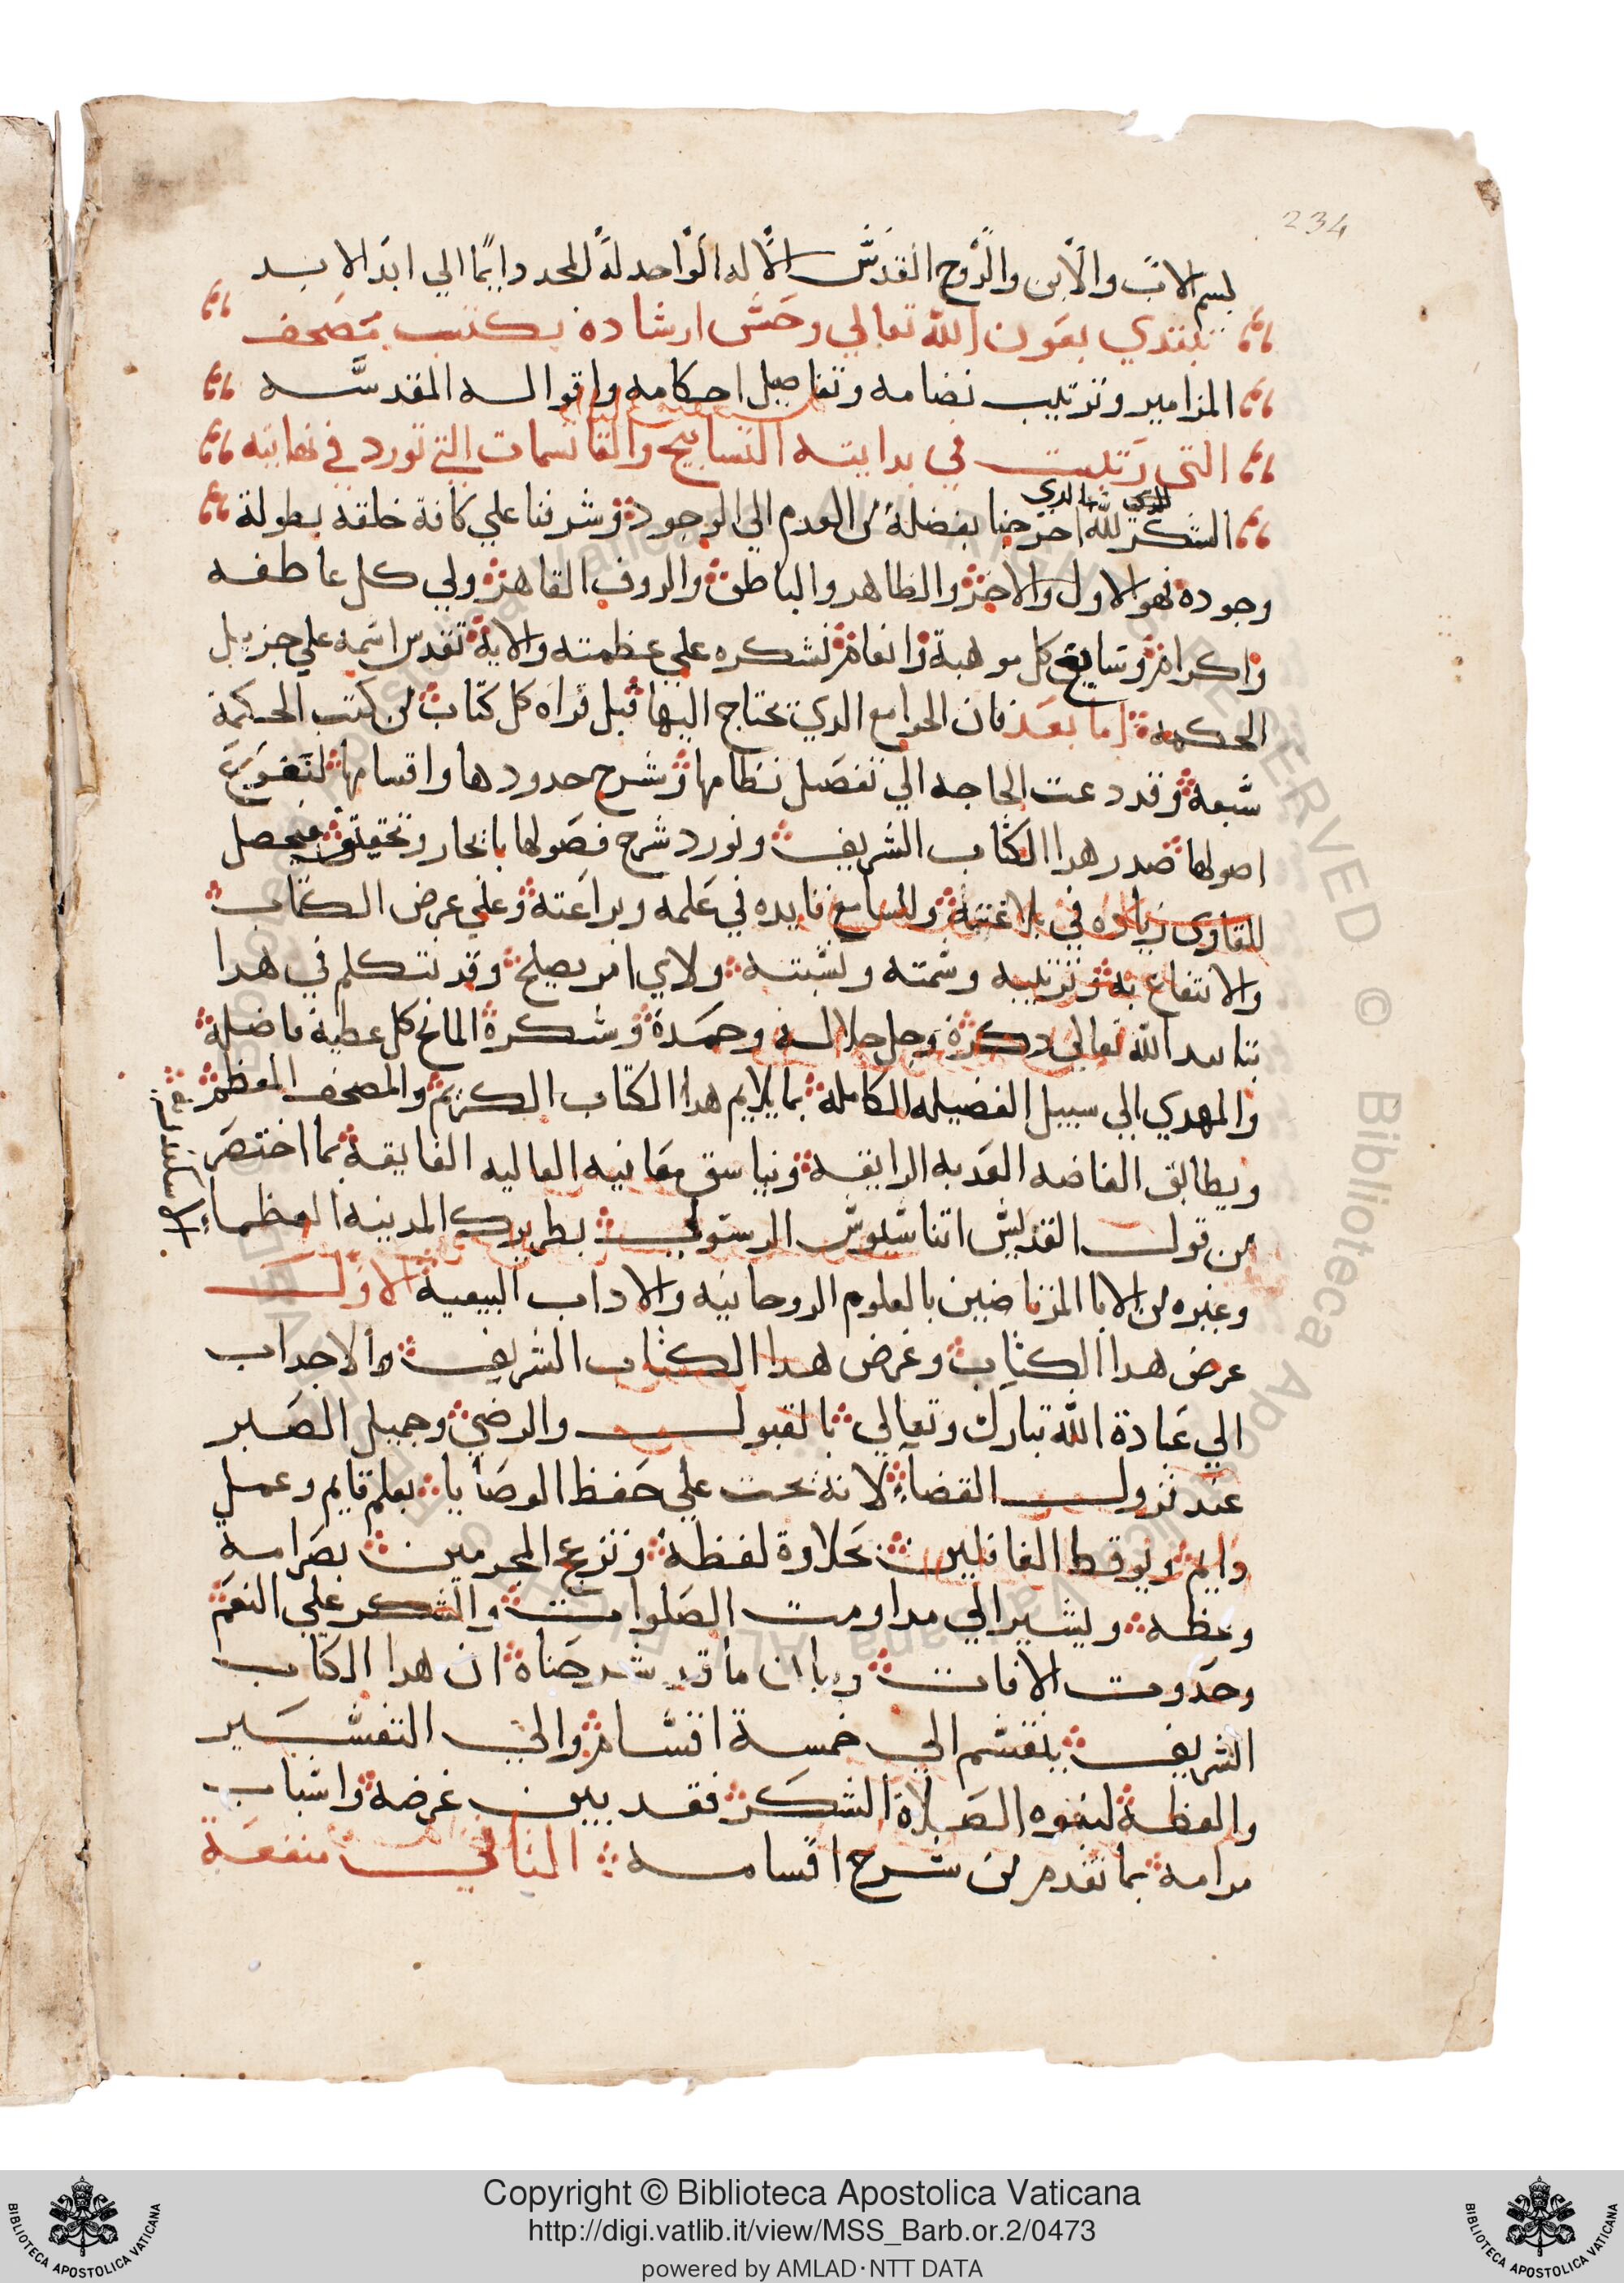 234
بسم الاب والابن والروح القدس الاله الواحد له المجد دايما الي ابد الابد
نبتدي بعون الله تعالي وحسن ارشاده بكتب مصحف
المزامير وترتيب نضامه وتفاصيل احكامه واقواله المقدسه
التي رتبت في بدايته التسابيح والقاسمات التي تورد في نهايته
الذي
الشكر لله اخرجنا بفضله من العدم الي الوجود وشرفنا علي كافة خلقه بطولة
وجوده فهو الاول والاخر والظاهر والباطن والروف القاهر ولي كل عاطفه
واكرام وسابغ كل موهبة وانعام نشكره علي عظمته والايه تقدس اسمه علي جزيل
الحكمه اما بعد فان الجوامع الدي تحتاج اليها قبل قراه كل كتاب من كتب الحكمة
سبعه وقد دعت الحاجه الي تفصيل نظامها وشرح حدودها واقسامها لتفريع
اصولها صدر هدا الكتاب الشريف ونورد شرح فصولها بايجاز وتحقيق فيحصل
للقاري زياده في بلاغته وللسامع فايده في علمه وبراعته وعلي عرض الكتاب
والانتفاع به وترتيبه وسمته ونسبته ولاي امر يصلح وقد نتكلم في هدا
بتاييد الله تعالي دكره وجل جلاله وحمده وشكره المانح كل عطية فاضلة
والمهدي الي سبيل الفضيله الكامله بما يلايم هدا الكتاب الكريم والمصحف المعظم
ويطابق الفاضه العدبه الرايقه ويناسق معانيه العاليه الفايقه مما اختصر
من قول القديس اتناسيوس الرسولي بطريرك المدينه العظماء
الاسكندريه
وغيره من الابا المرتاضين بالعلوم الروحانيه والاداب البيعيه الاول
عرض هدا الكتاب وغرض هدا الكتاب الشريف والاجداب
الي عبادة الله تبارك وتعالي بالقبول والرضي وجميل الصبر
عند نزول القضاء لانه يحت علي حفظ الوصايا بعلم قايم وعمل
دايم ويوقظ الغافلين بحلاوة لفظه وتزعج المجرمين بصرامة
وعظه ويشير الي مداومت الصلوات والشكر علي النعم
وحدوت الافات وبان ما قد شرحناه ان هدا الكتاب
الشريف ينقسم الي خمسة اقسام والي التفسير
والعظه لنفوه الصلاة الشكر فقد يبين غرضه واسباب
مرامه بما تقدم من شرح اقسامه التاني منفعة
Copyright © Biblioteca Apostolica Vaticana
http://digi.vatlib.it/view/MSS_Barb.or.2/0473
powered by AMLAD·NTT DATA
BIBLIOTECA APOSTOLICA VATICANA
BIBLIOTECA APOSTOLICA VATICANA